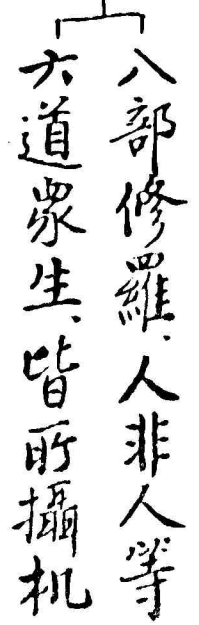 八部修羅、人非人等
六道眾生、皆所攝机